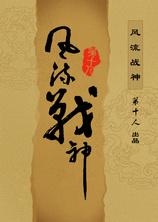 风流战神
第十人 出品
风流战神
第十人